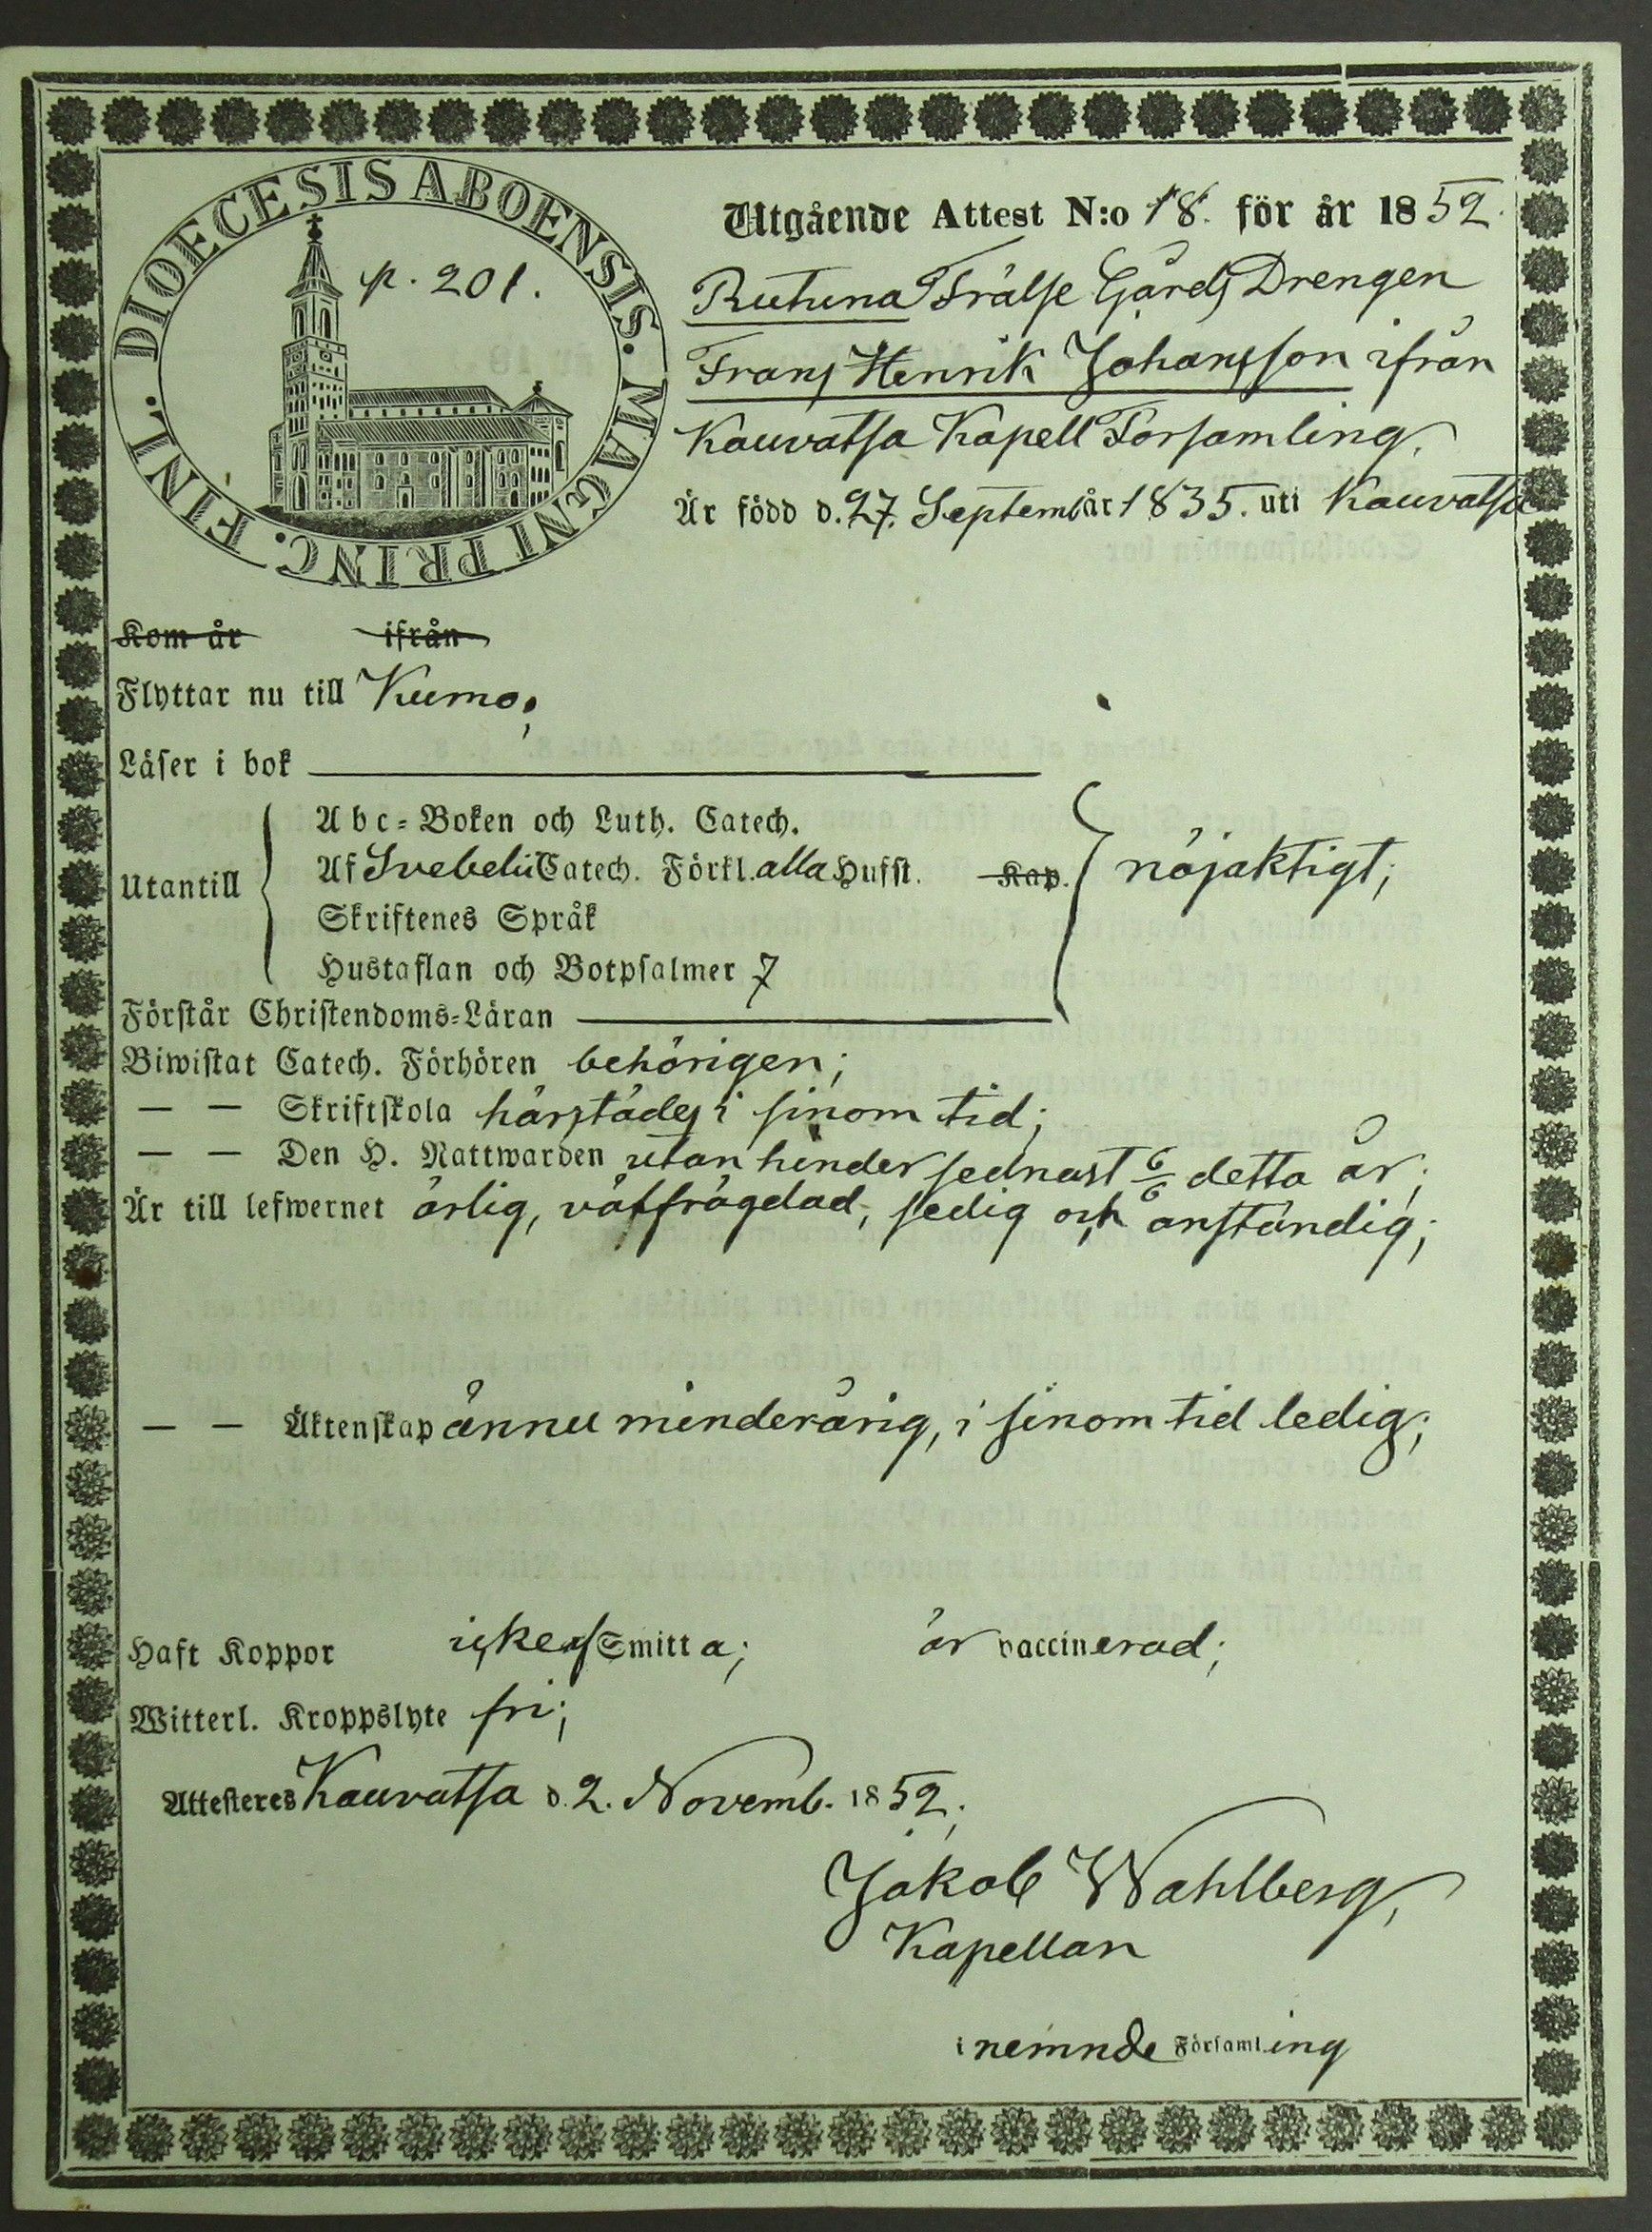 DIOECESIS ABOENSIS. MAGNI PRINC. FINL.
p. 201.
Utgående Attest N:o 18. för år 1852.
Rutuna Frälse Gårds Drengen
Frans Henrik Johansson ifrån
Kauvatsa Kapell Forsamling.
Är född d. 27. Septemb år 1835. uti Kauvatsa
Kom år ifrån
Flyttar nu till Kumo;
Läser i bok
Abc-Boken och Luth. Catech.
Utantill Af Svebelii Catech. Förkl. alla Hufst. Kap. nöjaktigt;
Skriftenes Språk
Hustaflan och Botpsalmer 7
Förstår Christendoms-Läran
Biwistat Catech. Förhören behörigen;
— — Skriftskola härstädes i sinom tid;
— — Den H. Nattwarden utan hinder sednast 6/6 detta år;
Är till lefwernet ärlig, välfrägdad, sedig och anständig;
— — Äktenskap ännu minderårig, i sinom tid ledig;
Haft Koppor Smitta; är vaccinerad;
Witterl. Kroppslyte fri;
Attesteres Kauvatsa d. 2. Novemb. 1852.
Jakob Wahlberg,
Kapellan
i nemnde Församling